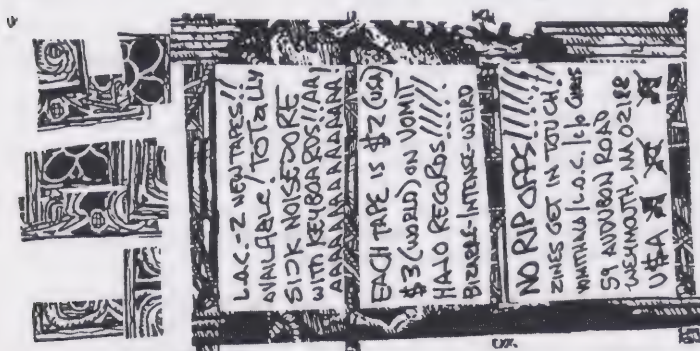 L.O.C.
L.O.C.- 2 NEW TAPES!!
AVAILABLE! TOTALLY
SICK NOISECORE
WITH KEYBOARDS!!AA
AAAAAAAAAAAAAAAA!
EACH TAPE IS $2 (USA)
$3 (WORLD) ON VOMIT
HALO RECORDS!!!!!
BIZARRE-INTENSE-WEIRD
NO RIP OFFS!!!!!!!
ZINES GET IN TOUCH!!
VOMITHALO/L.O.C./c/o CHRIS
59 AUDUBON ROAD
WEYMOUTH, MA 02188
U$A